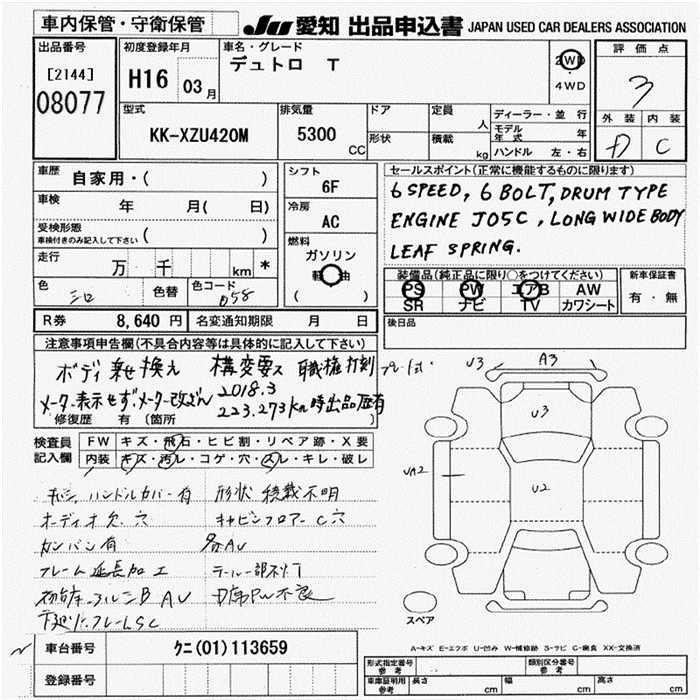 車内保管・守衛保管
JU 愛知 出品申込書 JAPAN USED CAR DEALERS ASSOCIATION
出品番号
[2144]
08077
初度登録年月
H16 03月
車名・グレード
デュトロ T
2WD
4WD
評価点
3
外装 内装
D C
型式
KK-XZU420M
排気量
5300 CC
ドア
形状
定員 人
積載 kg
ディーラー・並行
モデル年式 年
ハンドル 左・右
車歴 自家用・( )
車検 年 月( 日)
受検形態
車検付きのみ記入して下さい ( )
走行 万 千 km *
色 シロ 色替 色コード 058
シフト
6F
冷房
AC
燃料
ガソリン
軽油
( )
セールスポイント(正常に機能するものに限ります)
6 SPEED, 6 BOLT, DRUM TYPE
ENGINE J05C, LONG WIDE BODY
LEAF SPRING.
装備品(純正品に限り○をつけてください)
PS PW エアB AW
SR ナビ TV カワシート
新車保証書
有・無
R券 8,640 円 名変通知期限 月 日
後日品
注意事項申告欄(不具合内容等は具体的に記入して下さい)
ボディ乗せ換え 構変要ス 職権打刻プレート式
メーター表示せず.メーター改ざん 2018.3
223.273km時出品歴有
修復歴 有 (箇所
検査員記入欄
FW キズ・飛石・ヒビ割・リペア跡・X要
内装 キズ・汚レ・コゲ・穴・スレ・キレ・破レ
ハンドルカバー有 形状 積載不明
オーディオ欠.穴 キャビンフロアーC穴
カンバン有 各AU
フレーム延長加工 テール一部不灯
AU D席PW不良
下廻り.フレームSC
車台番号 クニ(01)113659
登録番号
A3
U3
U3
U2
UA2
スペア
A-キズ E-エクボ U-凹み W-補修跡 S-サビ C-腐食 XX-交換済
形式指定番号 参考
類別区分番号 参考
車庫証明用 参考 長さ cm 幅 cm 高さ cm